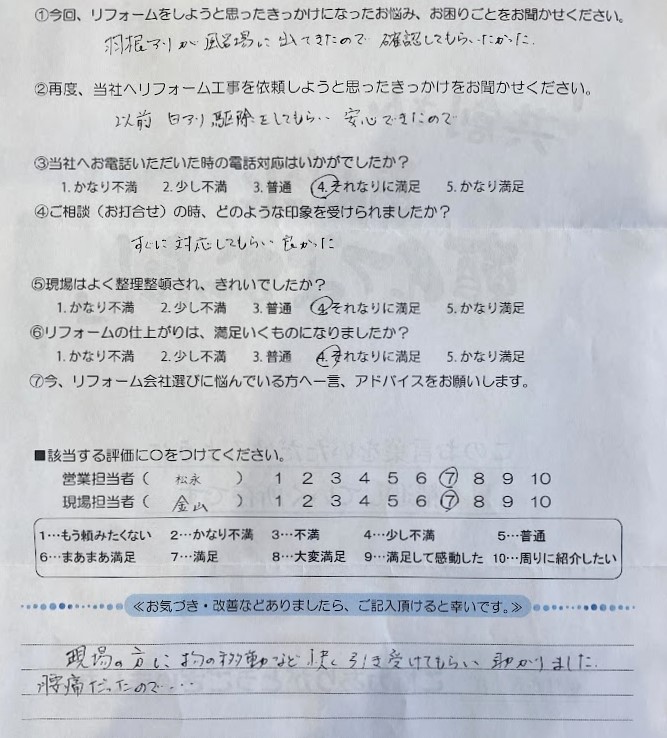 ①今回、リフォームをしようと思ったきっかけになったお悩み、お困りごとをお聞かせください。
羽根アリが風呂場に出てきたので 確認してもらいたかった.
②再度、当社へリフォーム工事を依頼しようと思ったきっかけをお聞かせください。
以前 白アリ駆除をしてもらい 安心できたので
③当社へお電話いただいた時の電話対応はいかがでしたか？
1.かなり不満 2.少し不満 3.普通 4.それなりに満足 5.かなり満足
④ご相談（お打合せ）の時、どのような印象を受けられましたか？
すぐに対応してもらい 良かった
⑤現場はよく整理整頓され、きれいでしたか？
1.かなり不満 2.少し不満 3.普通 4.それなりに満足 5.かなり満足
⑥リフォームの仕上がりは、満足いくものになりましたか？
1.かなり不満 2.少し不満 3.普通 4.それなりに満足 5.かなり満足
⑦今、リフォーム会社選びに悩んでいる方へ一言、アドバイスをお願いします。
■該当する評価に○をつけてください。
営業担当者（ 松永 ） 1 2 3 4 5 6 7 8 9 10
現場担当者（ 金山 ） 1 2 3 4 5 6 7 8 9 10
1…もう頼みたくない 2…かなり不満 3…不満 4…少し不満 5…普通
6…まあまあ満足 7…満足 8…大変満足 9…満足して感動した 10…周りに紹介したい
≪お気づき・改善などありましたら、ご記入頂けると幸いです。≫
現場の方に物の移動など快く引き受けてもらい 助かりました.
腰痛だったので・・・